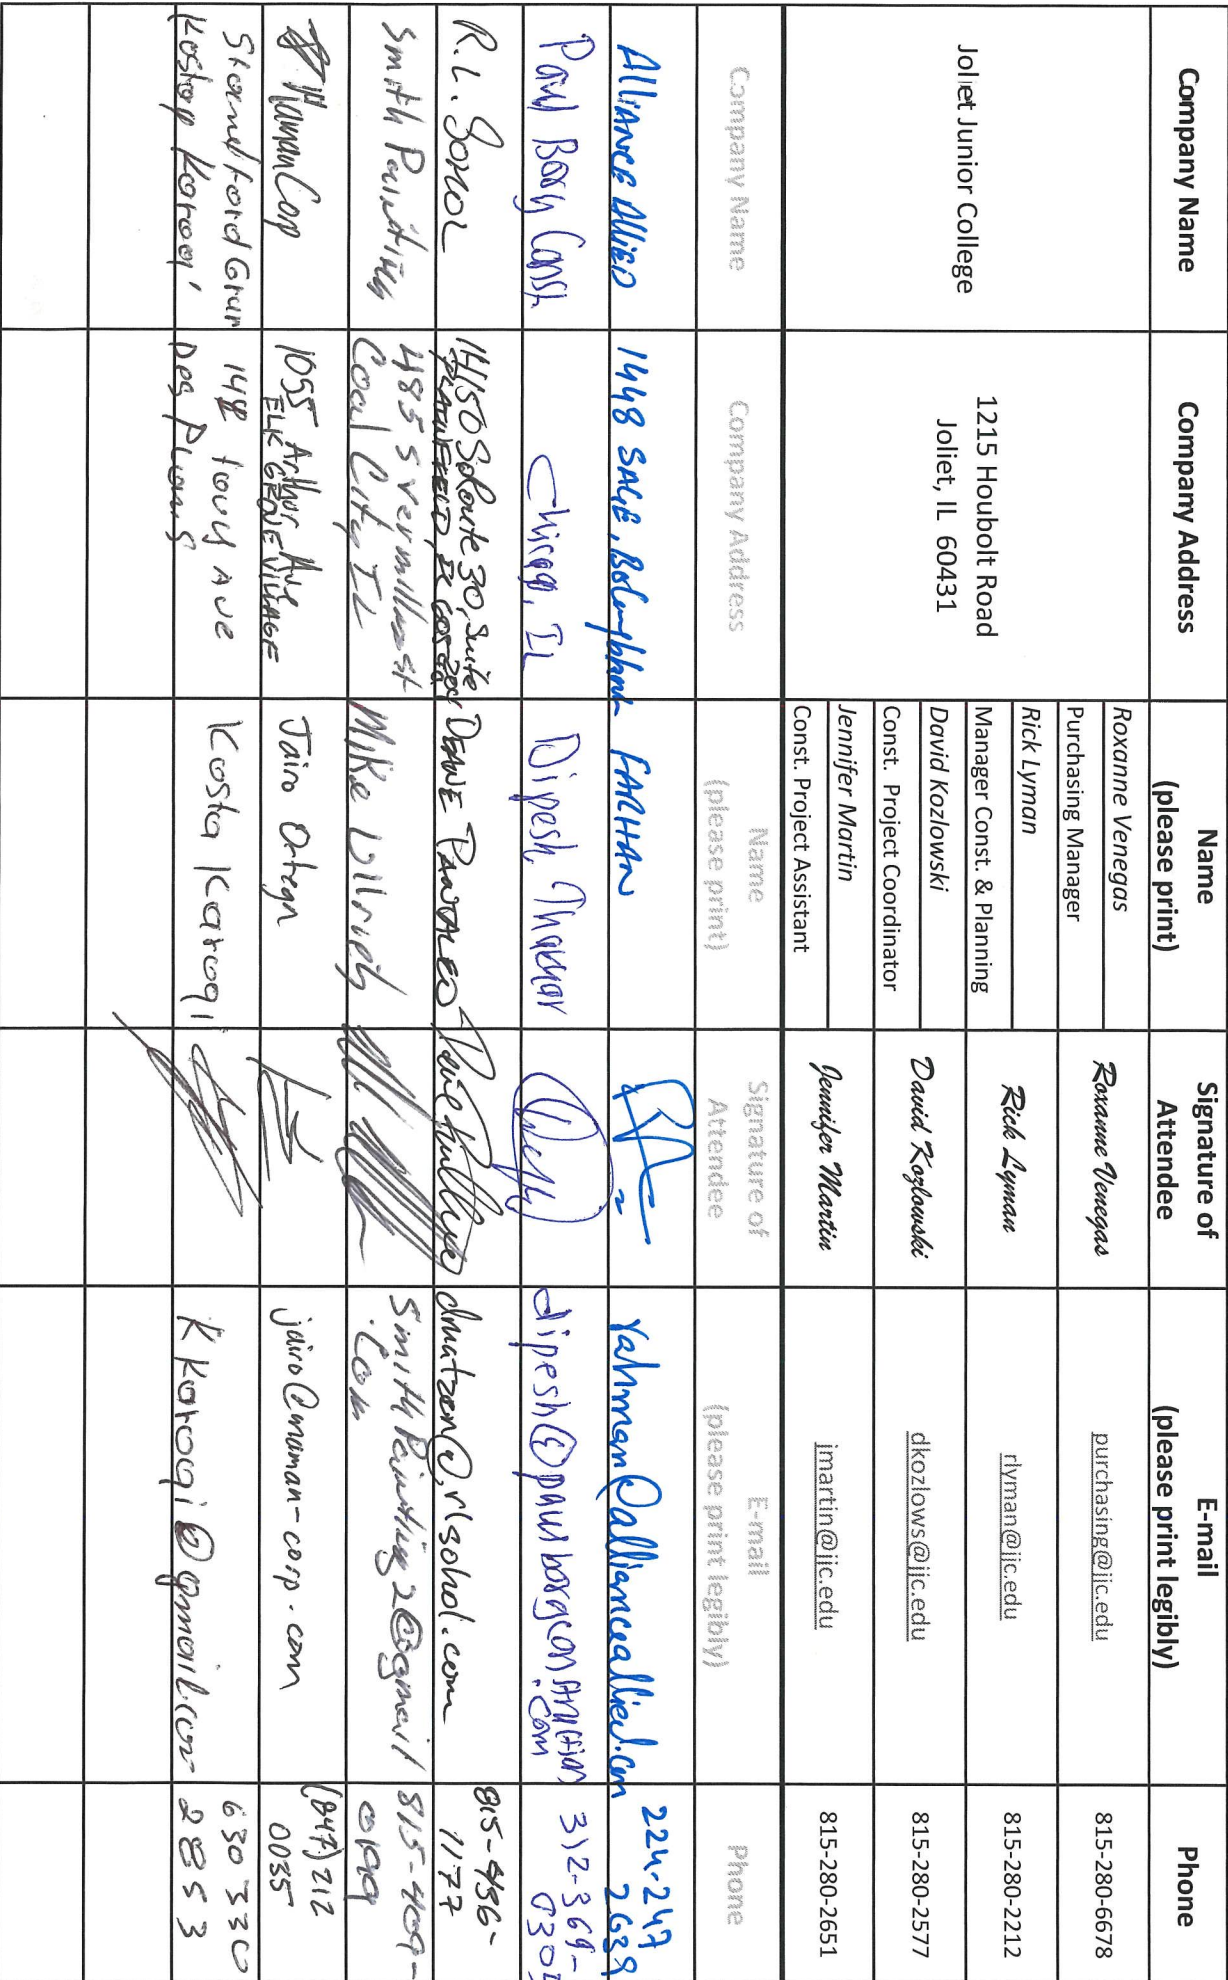 Company Name
Company Address
Name
(please print)
Signature of
Attendee
E-mail
(please print legibly)
Phone
Joliet Junior College
1215 Houbolt Road
Joliet, IL 60431
Roxanne Venegas
Purchasing Manager
Roxanne Venegas
purchasing@jjc.edu
815-280-6678
Rick Lyman
Manager Const. & Planning
Rick Lyman
rlyman@jjc.edu
815-280-2212
David Kozlowski
Const. Project Coordinator
David Kozlowski
dkozlows@jjc.edu
815-280-2577
Jennifer Martin
Const. Project Assistant
Jennifer Martin
imartin@jjc.edu
815-280-2651
Company Name
Company Address
Name
(please print)
Signature of
Attendee
E-mail
(please print legibly)
Phone
ALLIANCE ALLIED
1448 SAGE, Bolingbrook
FARHAN
rahman@allianceallied.com
224-247
2639
Paul Borg Const.
Chicago, IL
Dipesh Thakkar
dipesh@paulborgconstruction
.com
312-369-
R.L. Sohol
14150 S Route 30, Suite
PLAINFIELD IL
DEANE
@rlsohol.com
815-436-
1177
Smith Painting
485 S Vermillion St
Coal City IL
Mike
SmithPainting2@gmail
.com
815-409-
Maman Corp
1055 Arthur Ave
ELK GROVE VILLAGE
Jairo Ortega
jairo@maman-corp.com
(847) 212
0035
Touhy Ave
Des Plaines
Kosta Karoqi
Kkaroqi@gmail.com
630 330
2853